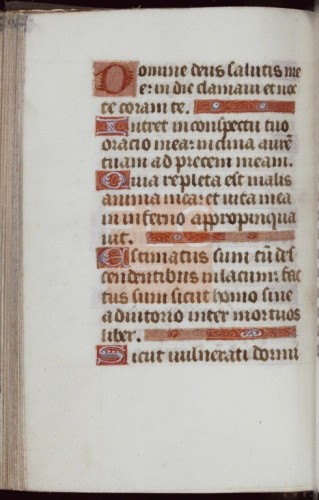 Domine deus salutis me
e: in die clamaui et noc
te coram te.
Intret in conspectu tuo
oracio mea: inclina aurē
tuam ad precem meam.
Quia repleta est malis
anima mea: et uita mea
in inferno appropinqua
uit.
Estimatus sum cū des
cendentibus in lacum: fac
tus sum sicut homo sine
adiutorio inter mortuos
liber.
Sicut uulnerati dormi